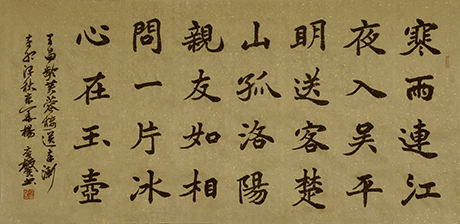 寒雨連江
夜入吳平
明送客楚
山孤洛陽
親友如相
問一片冰
心在玉壺
王昌齡芙蓉樓送辛漸